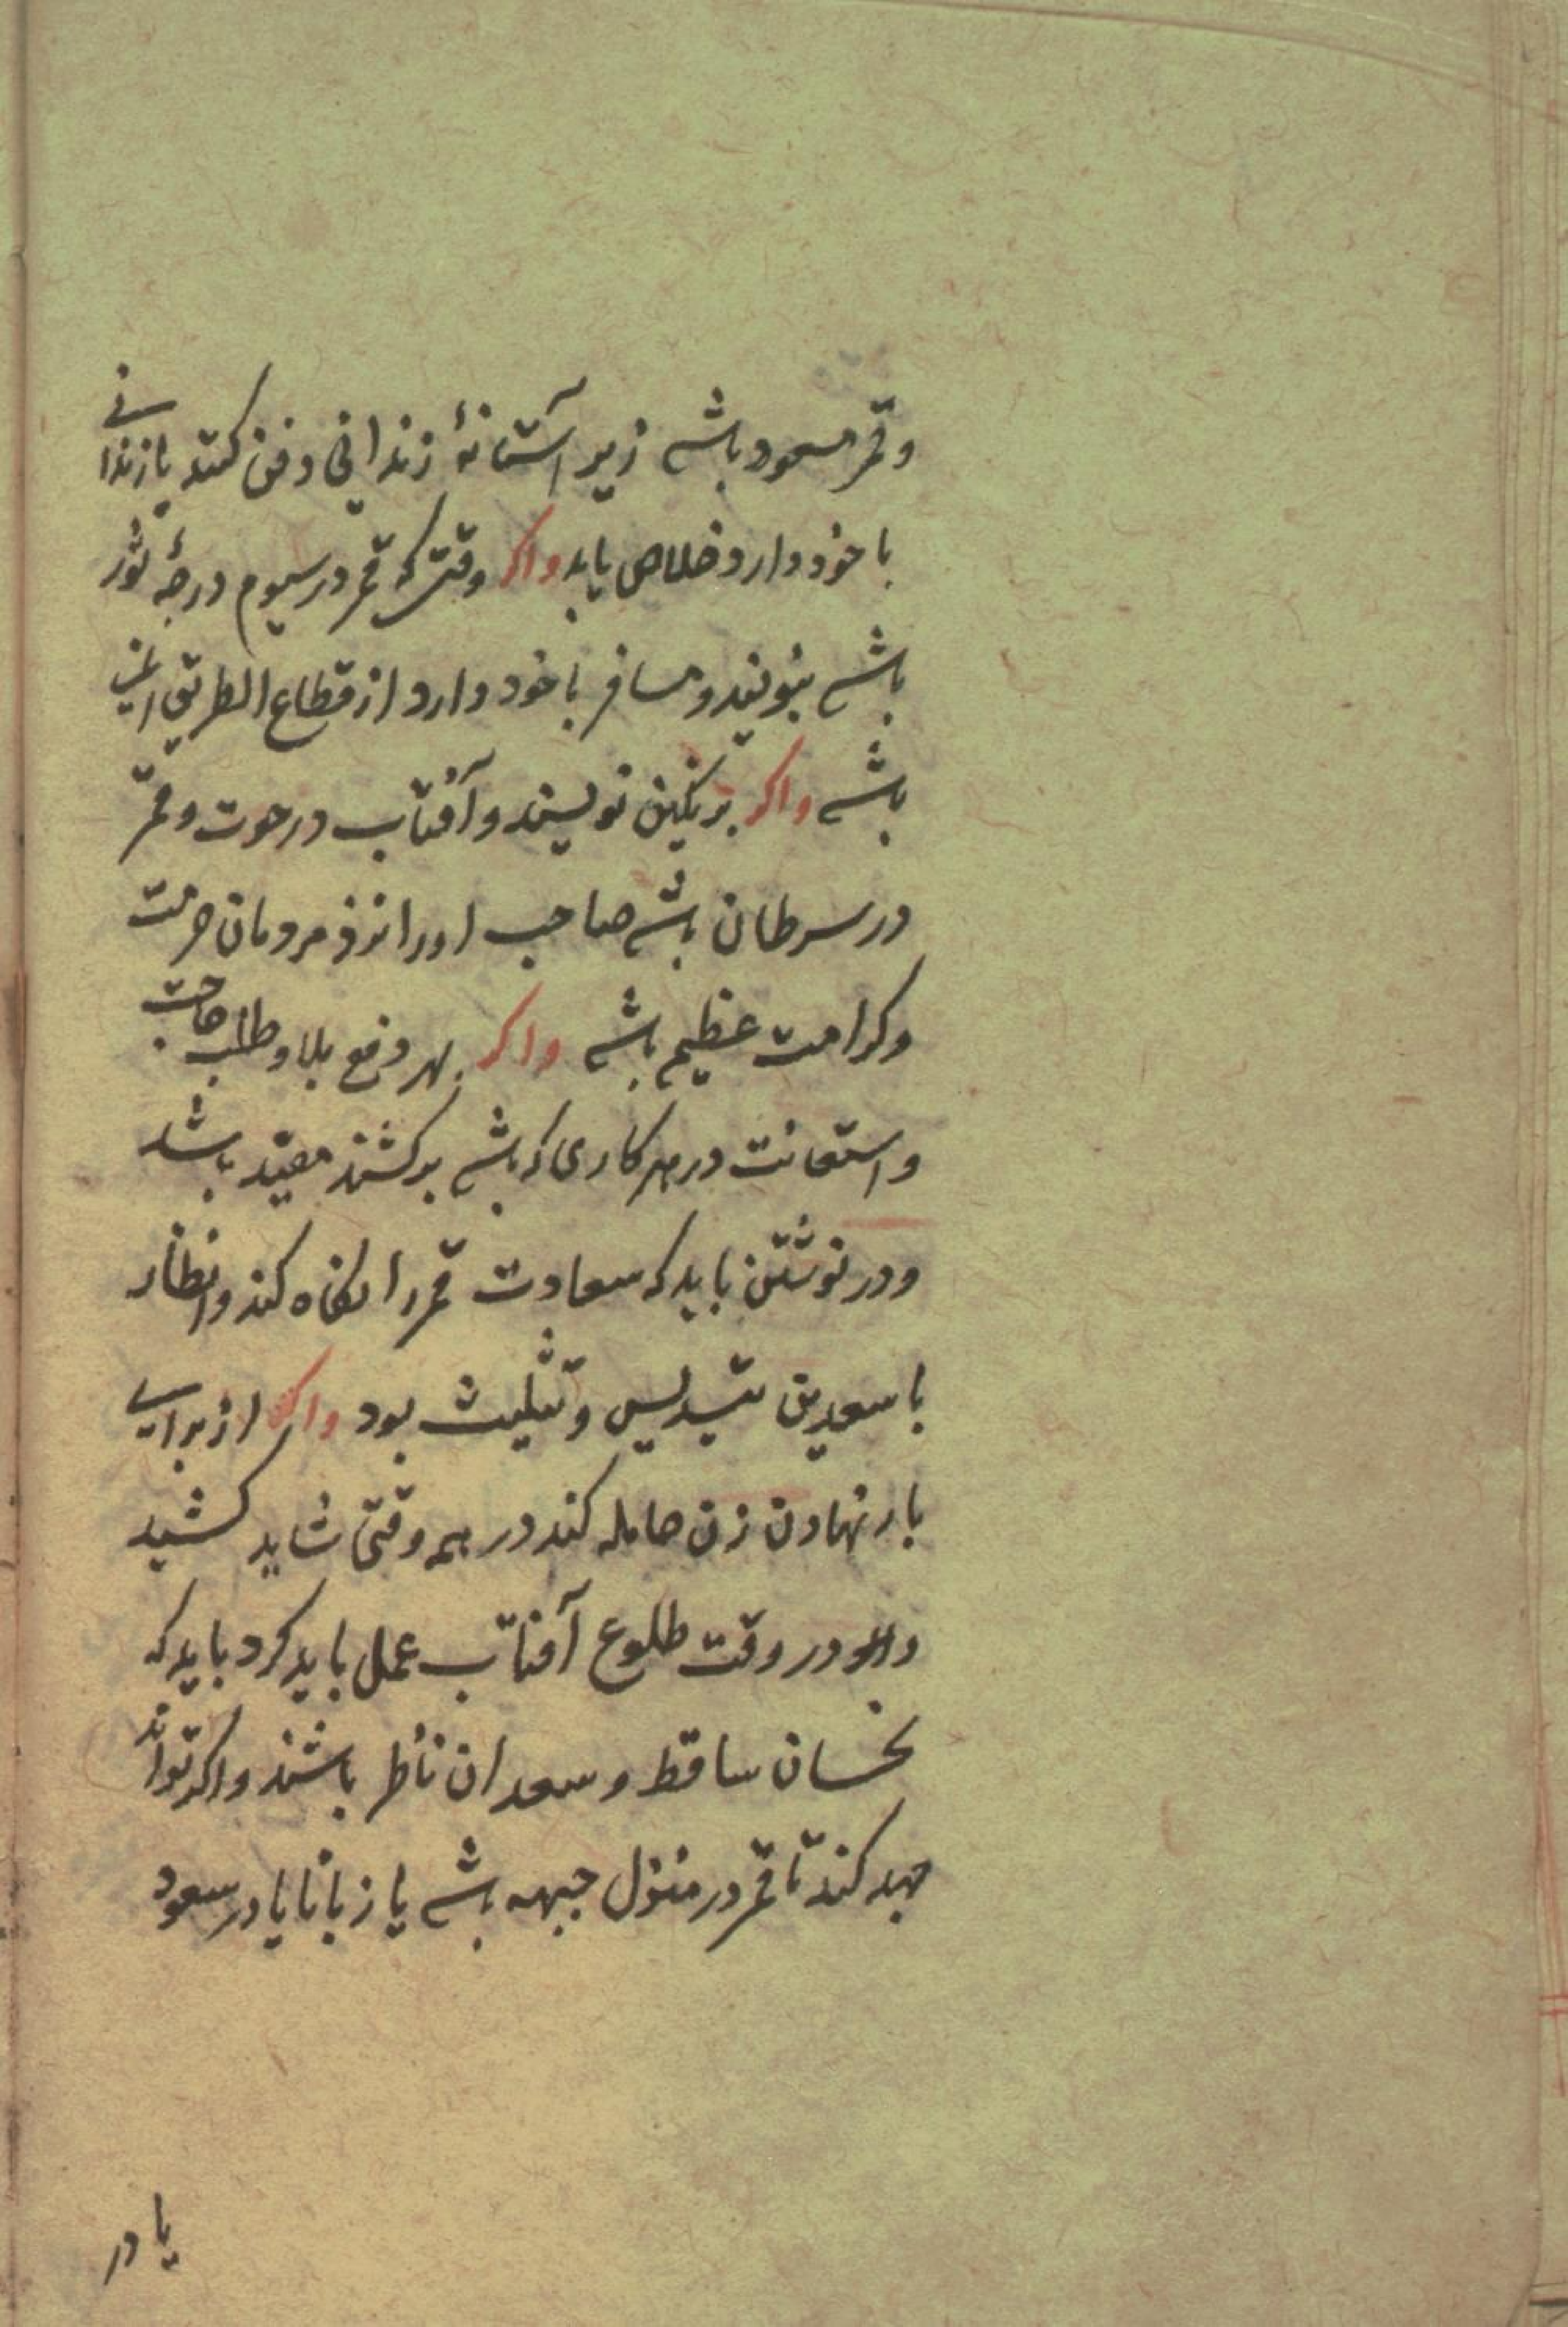 وقمر مسعود باشد زیر آستانهٔ زندانی دفن کنند یا زندانی
با خود دارد خلاص یابد واکر وقتی که قمر در سیوم درجهٔ ثور
باشد بنویسد و مسافر با خود دارد از قطاع الطریق ایمن
باشد واکر بر نکین نویسند و آفتاب در حوت و قمر
در سرطان باشد صاحب اورا نزد مردمان حرمت
وکرامت عظیم باشد واکر بهر دفع بلا و طلب حاجت
واستعانت در هر کاری که باشد برکشند مفید باشد
ودر نوشتن باید که سعادت قمر را نکاه کند وانظار
با سعدین تسدیس و تثلیث بود واکر از برای
بار نهادن زن حامله کند در همه وقتی شاید کشید
والا در وقت طلوع آفتاب عمل باید کرد باید که
نحسان ساقط و سعدان ناظر باشند واکر تواند
جهد کند تا قمر در منزل جبهه باشد یا زبانا یا در سعود
یا در